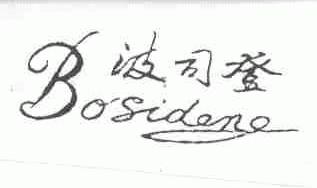 波司登
Bosidene